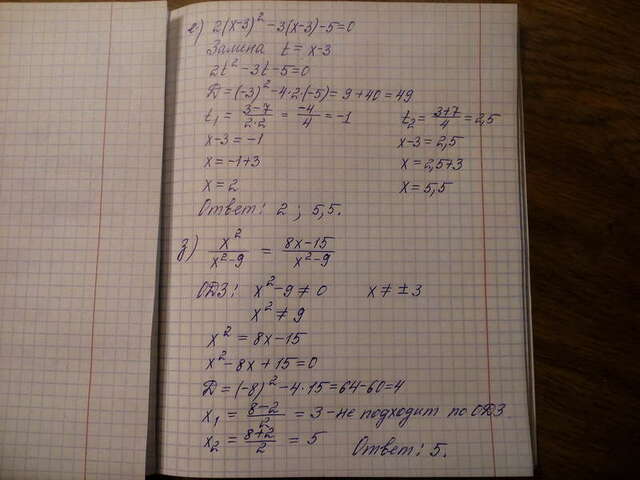 е) 2(x-3)² -3(x-3)-5=0
Замена t = x-3
2t² -3t-5=0
D = (-3)² -4·2·(-5) = 9+40 = 49
t₁ = (3-7)/(2·2) = (-4)/4 = -1 t₂ = (3+7)/4 = 2,5
x-3 = -1 x-3 = 2,5
x = -1+3 x = 2,5+3
x = 2 x = 5,5
Ответ: 2 ; 5,5.
з) x²/(x²-9) = (8x-15)/(x²-9)
ОДЗ: x²-9 ≠ 0 x ≠ ±3
x² ≠ 9
x² = 8x-15
x²-8x+15=0
D = (-8)² -4·15 = 64-60 = 4
x₁ = (8-2)/2 = 3 - не подходит по ОДЗ
x₂ = (8+2)/2 = 5 Ответ: 5.